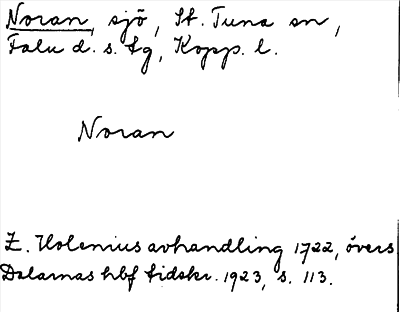 Noran, sjö, St. Tuna sn,
Falu d. s. tg, Kopp. l.
Noran
Z. Holenius avhandling 1722, övers
Dalarnas hbf tidskr. 1923, s. 113.